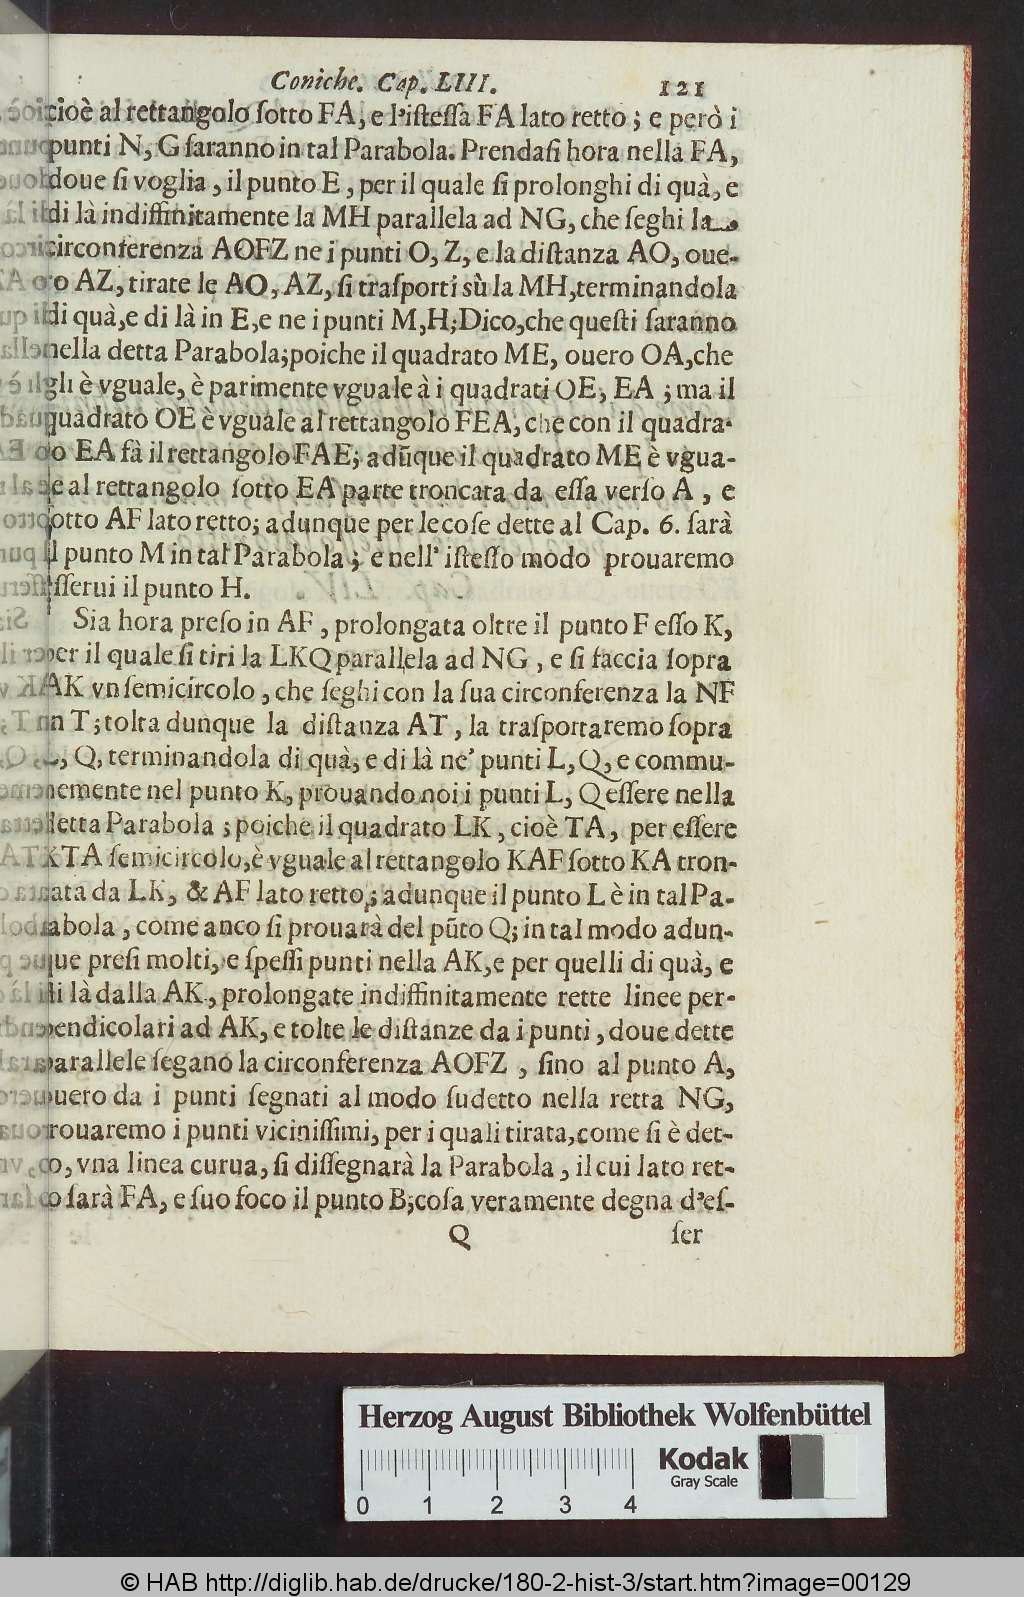 Coniche. Cap. LIII. 121
cioè al rettangolo ſotto FA, e l'iſteſſa FA lato retto; e però i
punti N, G ſaranno in tal Parabola. Prendaſi hora nella FA,
doue ſi voglia, il punto E, per il quale ſi prolonghi di quà, e
di là indiffinitamente la MH parallela ad NG, che ſeghi la
circonferenza AOFZ ne i punti O, Z, e la diſtanza AO, oue-
o AZ, tirate le AO, AZ, ſi traſporti sù la MH, terminandola
di quà, e di là in E, e ne i punti M, H; Dico, che queſti ſaranno
nella detta Parabola; poiche il quadrato ME, ouero OA, che
gli è vguale, è parimente vguale à i quadrati OE, EA; ma il
quadrato OE è vguale al rettangolo FEA, che con il quadra-
o EA fà il rettangolo FAE; adũque il quadrato ME è vgua-
e al rettangolo ſotto EA parte troncata da eſſa verſo A, e
otto AF lato retto; adunque per le coſe dette al Cap. 6. ſarà
il punto M in tal Parabola; e nell' iſteſſo modo prouaremo
ſſerui il punto H.
Sia hora preſo in AF, prolongata oltre il punto F eſſo K,
per il quale ſi tiri la LKQ parallela ad NG, e ſi faccia ſopra
AK vn ſemicircolo, che ſeghi con la ſua circonferenza la NF
in T; tolta dunque la diſtanza AT, la traſportaremo ſopra
L, Q, terminandola di quà, e di là ne' punti L, Q, e commu-
nemente nel punto K, prouando noi i punti L, Q eſſere nella
detta Parabola; poiche il quadrato LK, cioè TA, per eſſere
KTA ſemicircolo, è vguale al rettangolo KAF ſotto KA tron-
cata da LK, & AF lato retto; adunque il punto L è in tal Pa-
rabola, come anco ſi prouarà del pũto Q; in tal modo adun-
que preſi molti, e ſpeſſi punti nella AK, e per quelli di quà, e
di là dalla AK, prolongate indiffinitamente rette linee per-
pendicolari ad AK, e tolte le diſtanze da i punti, doue dette
parallele ſegano la circonferenza AOFZ, ſino al punto A,
ouero da i punti ſegnati al modo ſudetto nella retta NG,
rouaremo i punti viciniſſimi, per i quali tirata, come ſi è det-
o, vna linea curua, ſi diſſegnarà la Parabola, il cui lato ret-
o ſarà FA, e ſuo foco il punto B; coſa veramente degna d'eſ-
Q ſer
Herzog August Bibliothek Wolfenbüttel
Kodak
Gray Scale
0 1 2 3 4
© HAB http://diglib.hab.de/drucke/180-2-hist-3/start.htm?image=00129